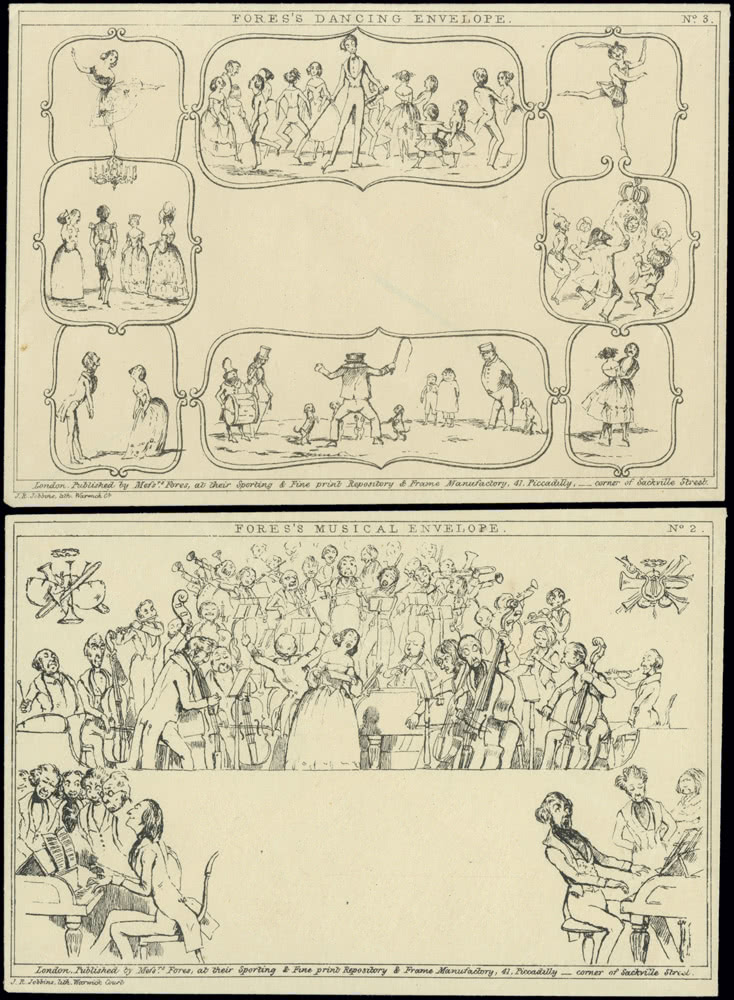 FORES'S DANCING ENVELOPE. No 3.
London. Published by Messrs. Fores, at their Sporting & Fine print Repository & Frame Manufactory, 41. Piccadilly, __ corner of Sackville Street.
J.R. Jobbins, lith. Warwick Ct
FORES'S MUSICAL ENVELOPE. No 2.
London. Published by Messrs. Fores, at their Sporting & Fine print Repository & Frame Manufactory, 41. Piccadilly __ corner of Sackville Street.
J.R. Jobbins, lith. Warwick Court